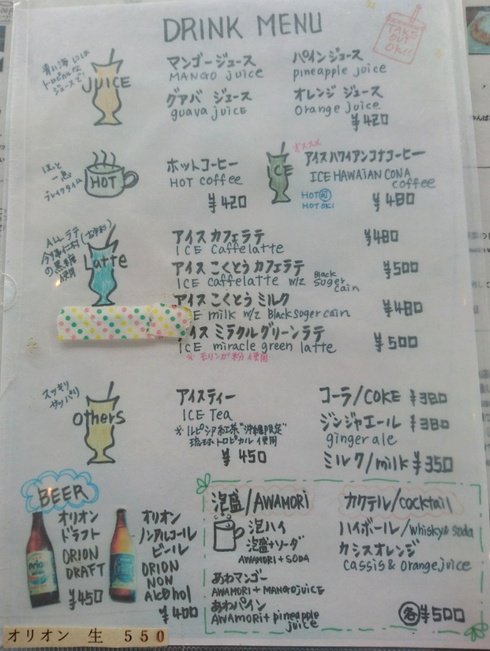 DRINK MENU
TAKE OUT OK!!
青い海には
トロピカルな
ジュースで♪
JUICE
マンゴージュース
MANGO juice
パインジュース
pineapple juice
グァバ ジュース
guava juice
オレンジ ジュース
Orange juice
¥420
ほっと
一息
ブレイクタイム
HOT
ホットコーヒー
HOT coffee
¥420
オススメ
ICE
アイスハワイアンコナコーヒー
ICE HAWAIIAN CONA
coffee
HOT可
HOT OK!
¥480
ALL ラテ
の黒糖
使用
Latte
アイス カフェラテ
ICE caffelatte
¥480
アイス こくとう カフェラテ
ICE caffelatte w/z Black suger cain
¥500
アイス こくとう ミルク
ICE milk w/z black suger cain
¥480
アイス ミラクル グリーン ラテ
ICE miracle green latte
¥500
※ モリンガ粉 使用
スッキリ
サッパリ
others
アイスティー
ICE Tea
※ルピシア紅茶"沖縄限定"
琉球トロピカル使用
¥450
コーラ/COKE ¥380
ジンジャエール ¥380
ginger ale
ミルク/milk ¥350
BEER
オリオン
ドラフト
ORION
DRAFT
¥450
オリオン
ノンアルコール
ビール
ORION
NON
Alcohol
¥400
オリオン 生 550
泡盛/AWAMORI
泡ハイ
泡盛+ソーダ
AWAMORI+SODA
あわマンゴー
AWAMORI+MANGO JUICE
あわパイン
AWAMORI+pineapple
juice
カクテル/cocktail
ハイボール/whisky & soda
カシスオレンジ
cassis & orange juice
各¥500